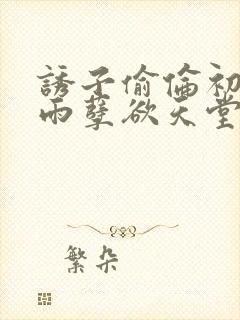 誘子偷倫初
雨孽欲天堂
繁朵